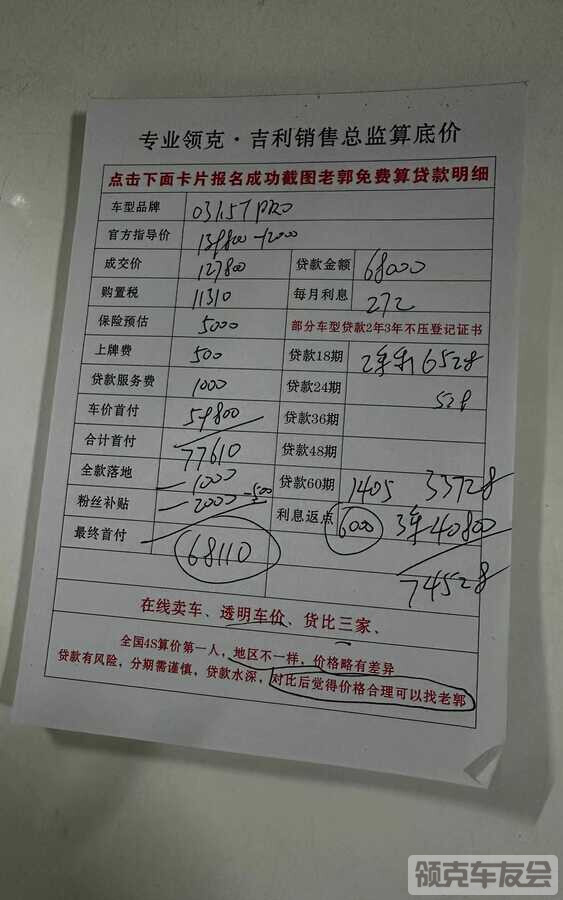 专业领克·吉利销售总监算底价
点击下面卡片报名成功截图老郭免费算贷款明细
车型品牌 03 1.5T PRO
官方指导价 139800-12000
成交价 127800 贷款金额 68000
购置税 11310 每月利息 272
保险预估 5000 部分车型贷款2年3年不压登记证书
上牌费 500 贷款18期 2年 6528
贷款服务费 1000 贷款24期 528
车价首付 59800 贷款36期
合计首付 77610 贷款48期
全款落地 1000 贷款60期 1405 33728
粉丝补贴 2000-500 利息返点 6000 3年 40800
最终首付 68110 74528
在线卖车、透明车价、货比三家、
全国4S算价第一人,地区不一样,价格略有差异
贷款有风险,分期需谨慎,贷款水深,对比后觉得价格合理可以找老郭
领克车友会